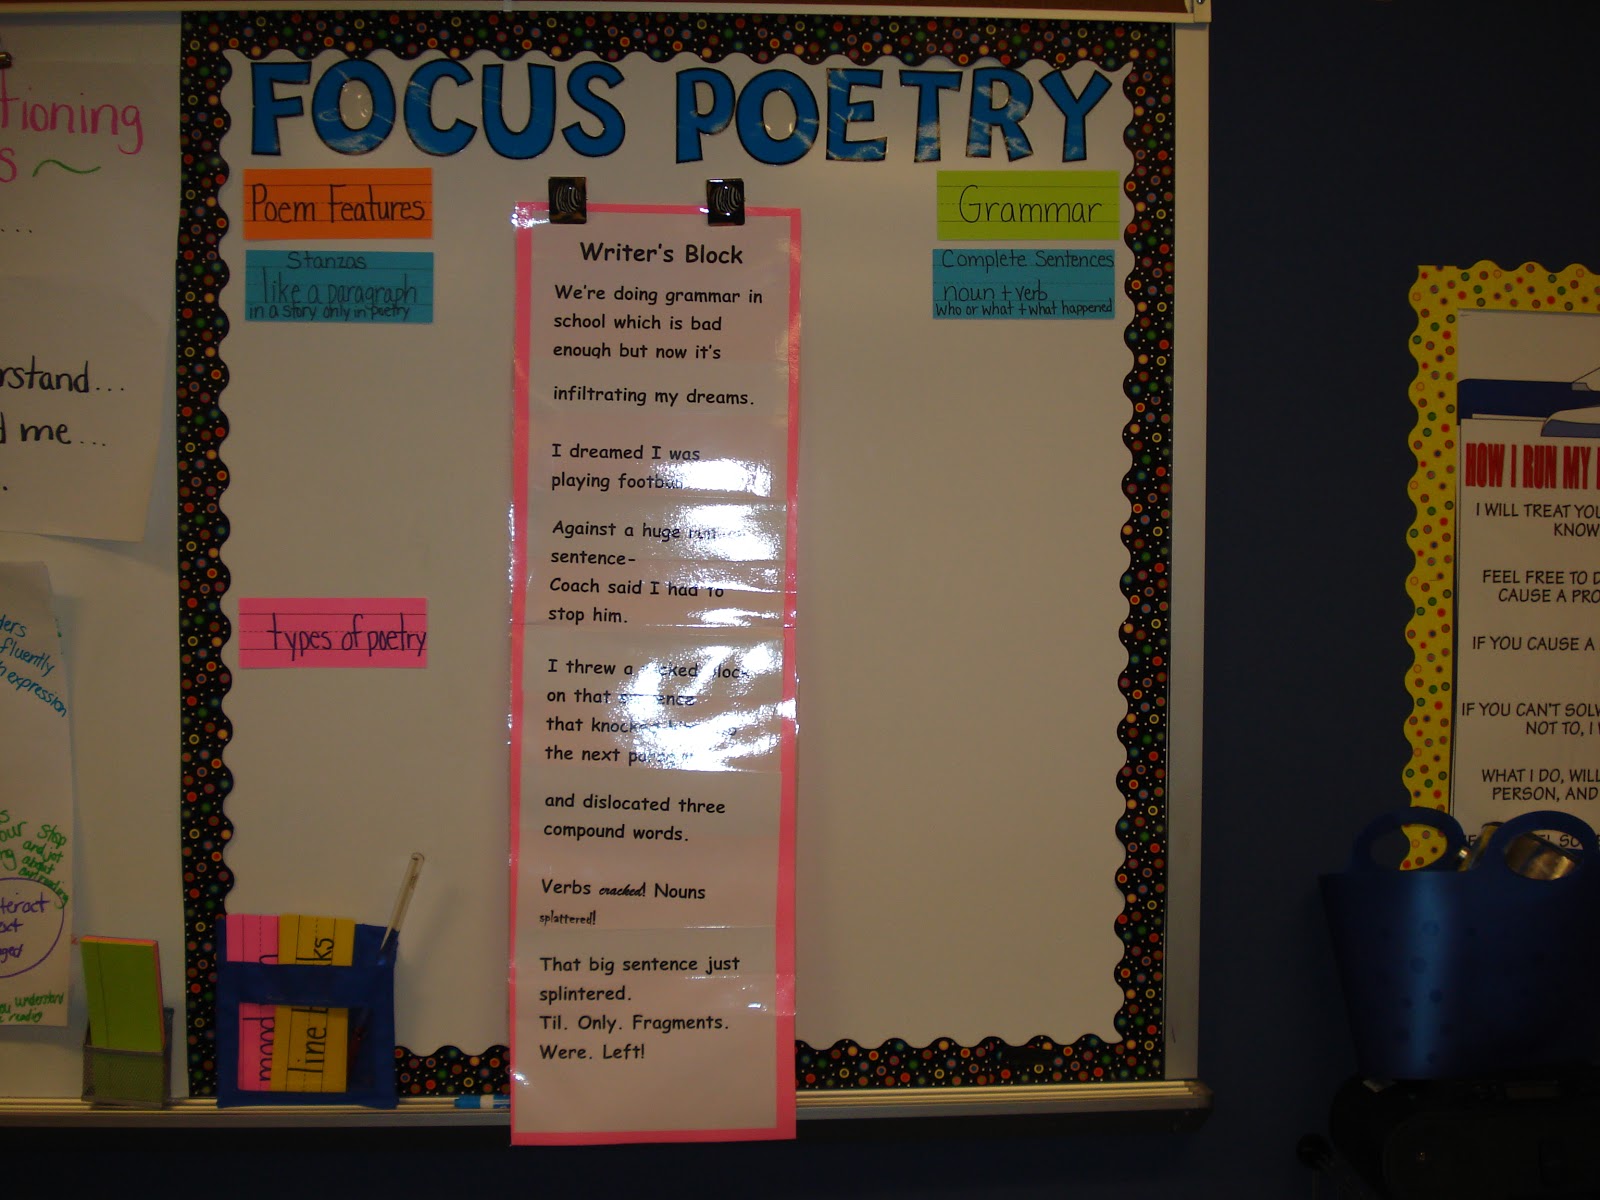 tioning
s ~
...
rstand...
d me...
.
ders
fluently
h expression
your stop
and jot
about
teract
act
understand
reading
FOCUS POETRY
Poem Features
Stanzas
like a paragraph
in a story only in poetry
types of poetry
mood
line
ks
Writer's Block
We're doing grammar in
school which is bad
enough but now it's
infiltrating my dreams.
I dreamed I was
playing
Against a huge
sentence-
Coach said I had to
stop him.
I threw a
on that
that
the next
and dislocated three
compound words.
Verbs cracked! Nouns
splattered!
That big sentence just
splintered.
Til. Only. Fragments.
Were. Left!
Grammar
Complete Sentences
noun + verb
who or what + what happened
HOW I RUN MY
I WILL TREAT YOU
KNOW
FEEL FREE TO D
CAUSE A PRO
IF YOU CAUSE A
IF YOU CAN'T SOLV
NOT TO, I
WHAT I DO, WILL
PERSON, AND